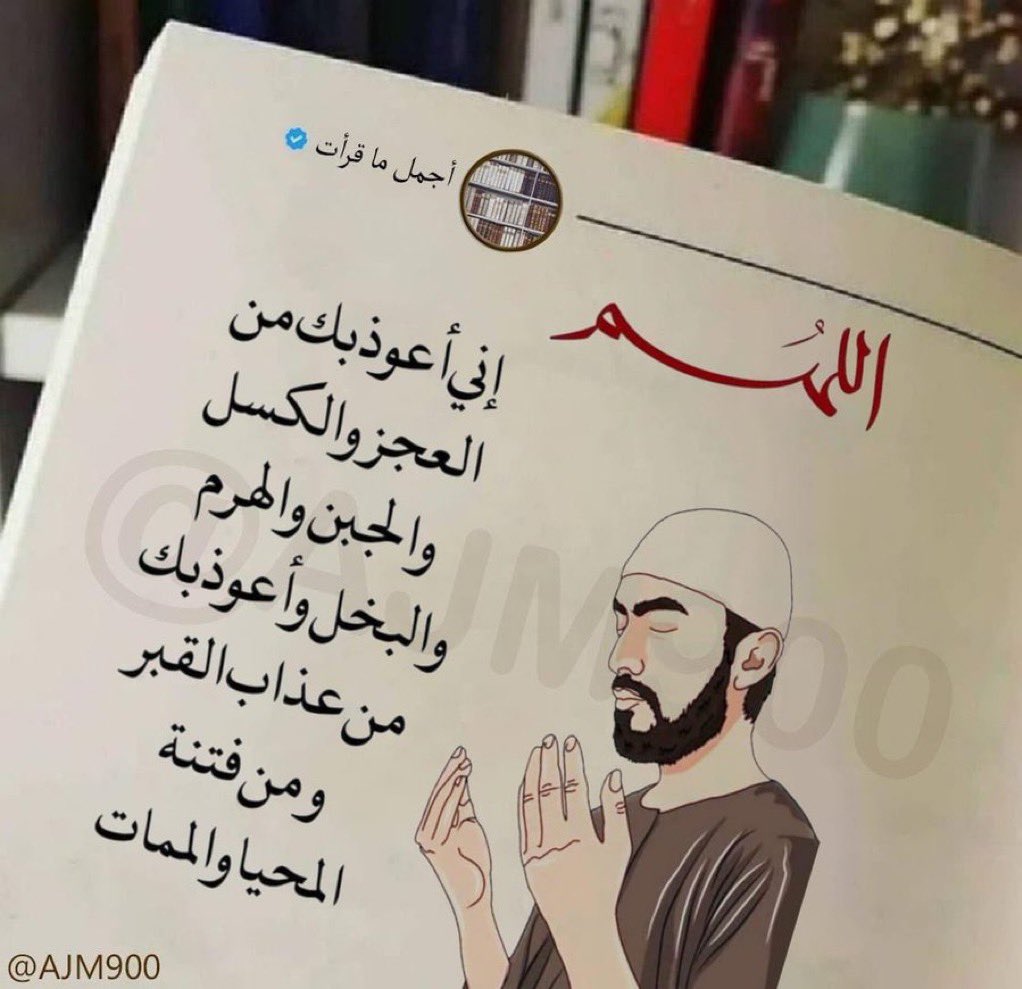 أجمل ما قرأت
اللهُم
إني أعوذ بك من
العجز والكسل
والجبن والهرم
والبخل وأعوذ بك
من عذاب القبر
ومن فتنة
المحيا والممات
@AJM900
@AJM900